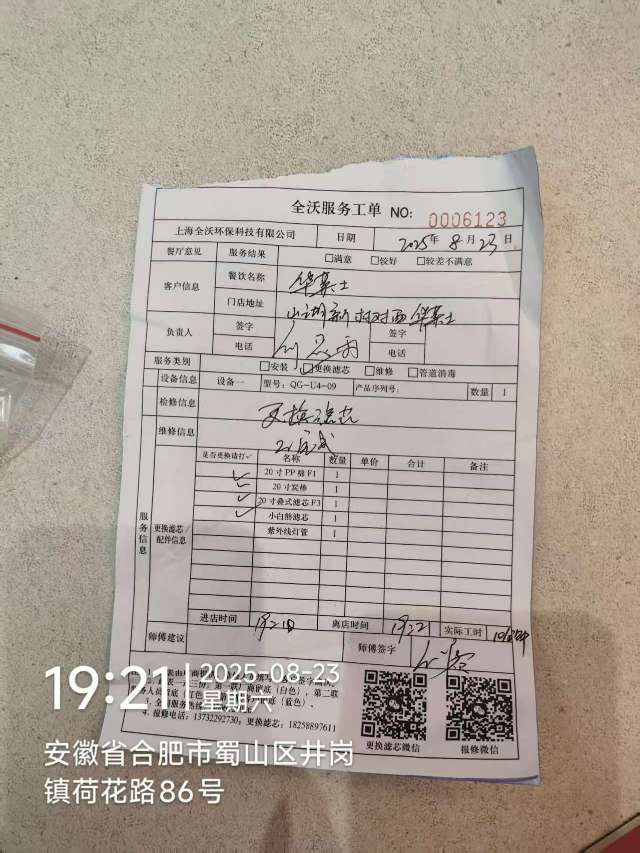 全沃服务工单 NO: 0006123
上海全沃环保科技有限公司 日期 2025年8月23日
餐厅意见 服务结果 □满意 □较好 □较差不满意
客户信息 餐饮名称 华莱士
门店地址 山湖新村对面华莱士
负责人 签字 签字
电话 电话
服务类别 □安装 □更换滤芯 □维修 □管道消毒
设备信息 设备一 型号: QG-U4-09 产品序列号: 数量 1
检修信息 更换滤芯
维修信息 已完成
服务信息 更换滤芯配件信息
是否更换请打✓ 名称 数量 单价 合计 备注
✓ 20寸PP棉F1 1
✓ 20寸炭棒 1
✓ 20寸叠式滤芯F3 1
✓ 小白鲸滤芯 1
紫外线灯管 1
进店时间 离店时间 1922 实际工时
师傅建议 师傅签字
4. 报修电话: 13732292730; 更换滤芯: 18258897611
更换滤芯微信 报修微信
19:21 2025-08-23
星期六
安徽省合肥市蜀山区井岗
镇荷花路86号